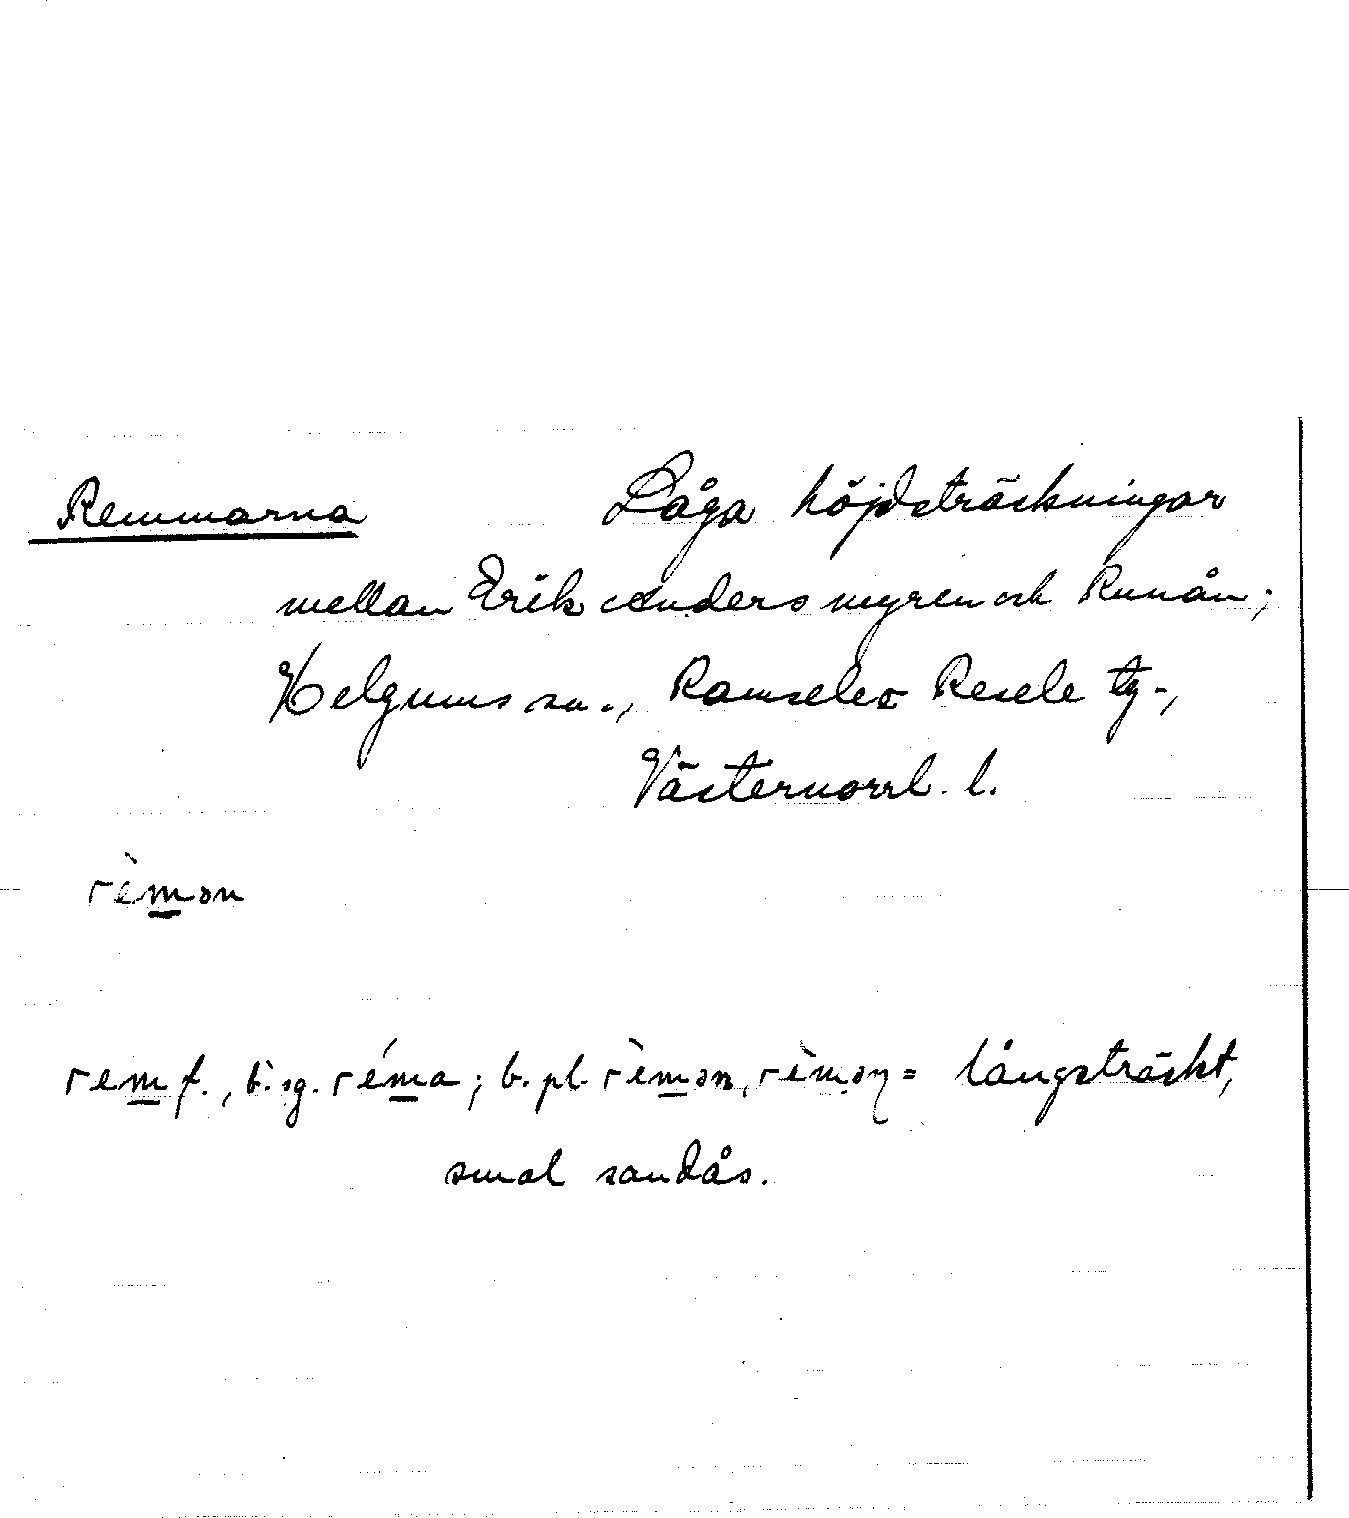 Remmarna Låga höjdsträckningar
mellan Erik Anders myren och Runån;
Helgums sn., Ramsele o Resele tg.,
Västernorrl. l.
rèmən
rem f., b. sg. réma; b. pl. rèmən, rèməŋ = långsträckt,
smal sandås.